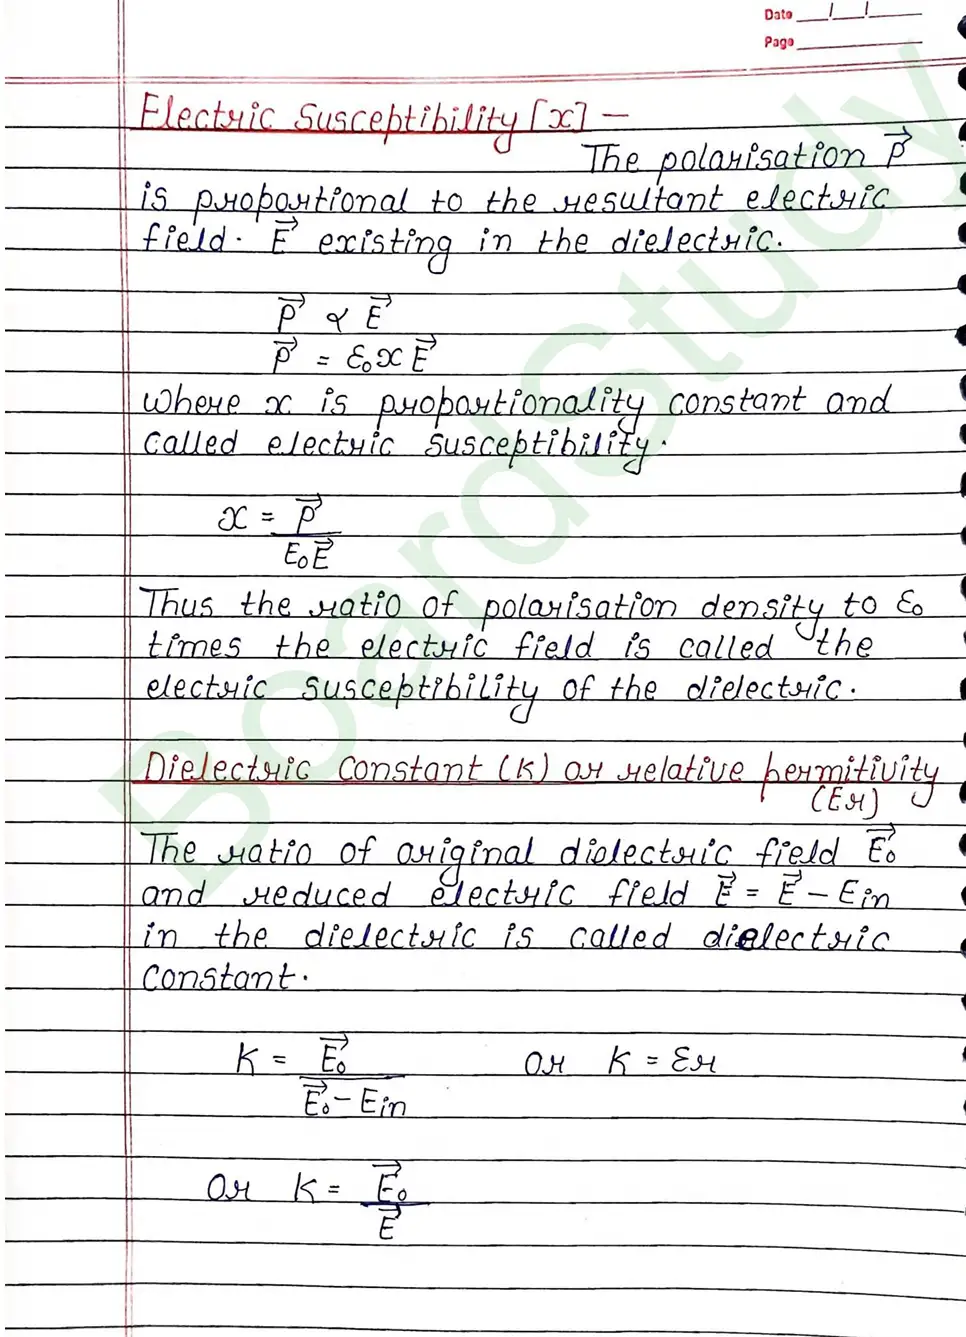 Date __/__/__
Page
Electric Susceptibility [x] -
The polarisation P⃗
is proportional to the resultant electric
field. E⃗ existing in the dielectric.
P⃗ ∝ E⃗
P⃗ = ε₀x E⃗
where x is proportionality constant and
called electric susceptibility.
x = P⃗
E₀E⃗
Thus the ratio of polarisation density to ε₀
times the electric field is called the
electric susceptibility of the dielectric.
Dielectric Constant (K) or relative permitivity
(Er)
The ratio of original dielectric field E⃗₀
and reduced electric field E⃗ = E⃗ - Ein
in the dielectric is called dielectric
constant.
K = E⃗₀ or K = Er
E⃗₀ - Ein
or K = E⃗₀
E⃗
BoardStudy